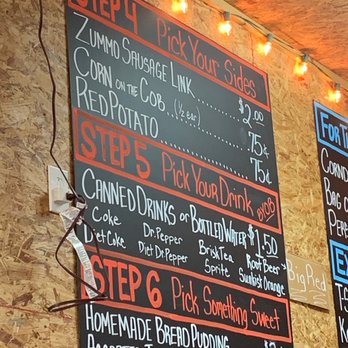 STEP 4 Pick Your Sides
Zummo Sausage Link ........ $2.00
Corn on the Cob (1/2 ear) ........ 75¢
Red Potato ........ 75¢
STEP 5 Pick Your Drink BYOB
Canned Drinks or Bottled Water $1.50
Coke Dr. Pepper Brisk Tea Root Beer
Diet Coke Diet Dr. Pepper Sprite Sunkist Orange
Big Red
STEP 6 Pick Something Sweet
Homemade Bread Pudding
For
Bag